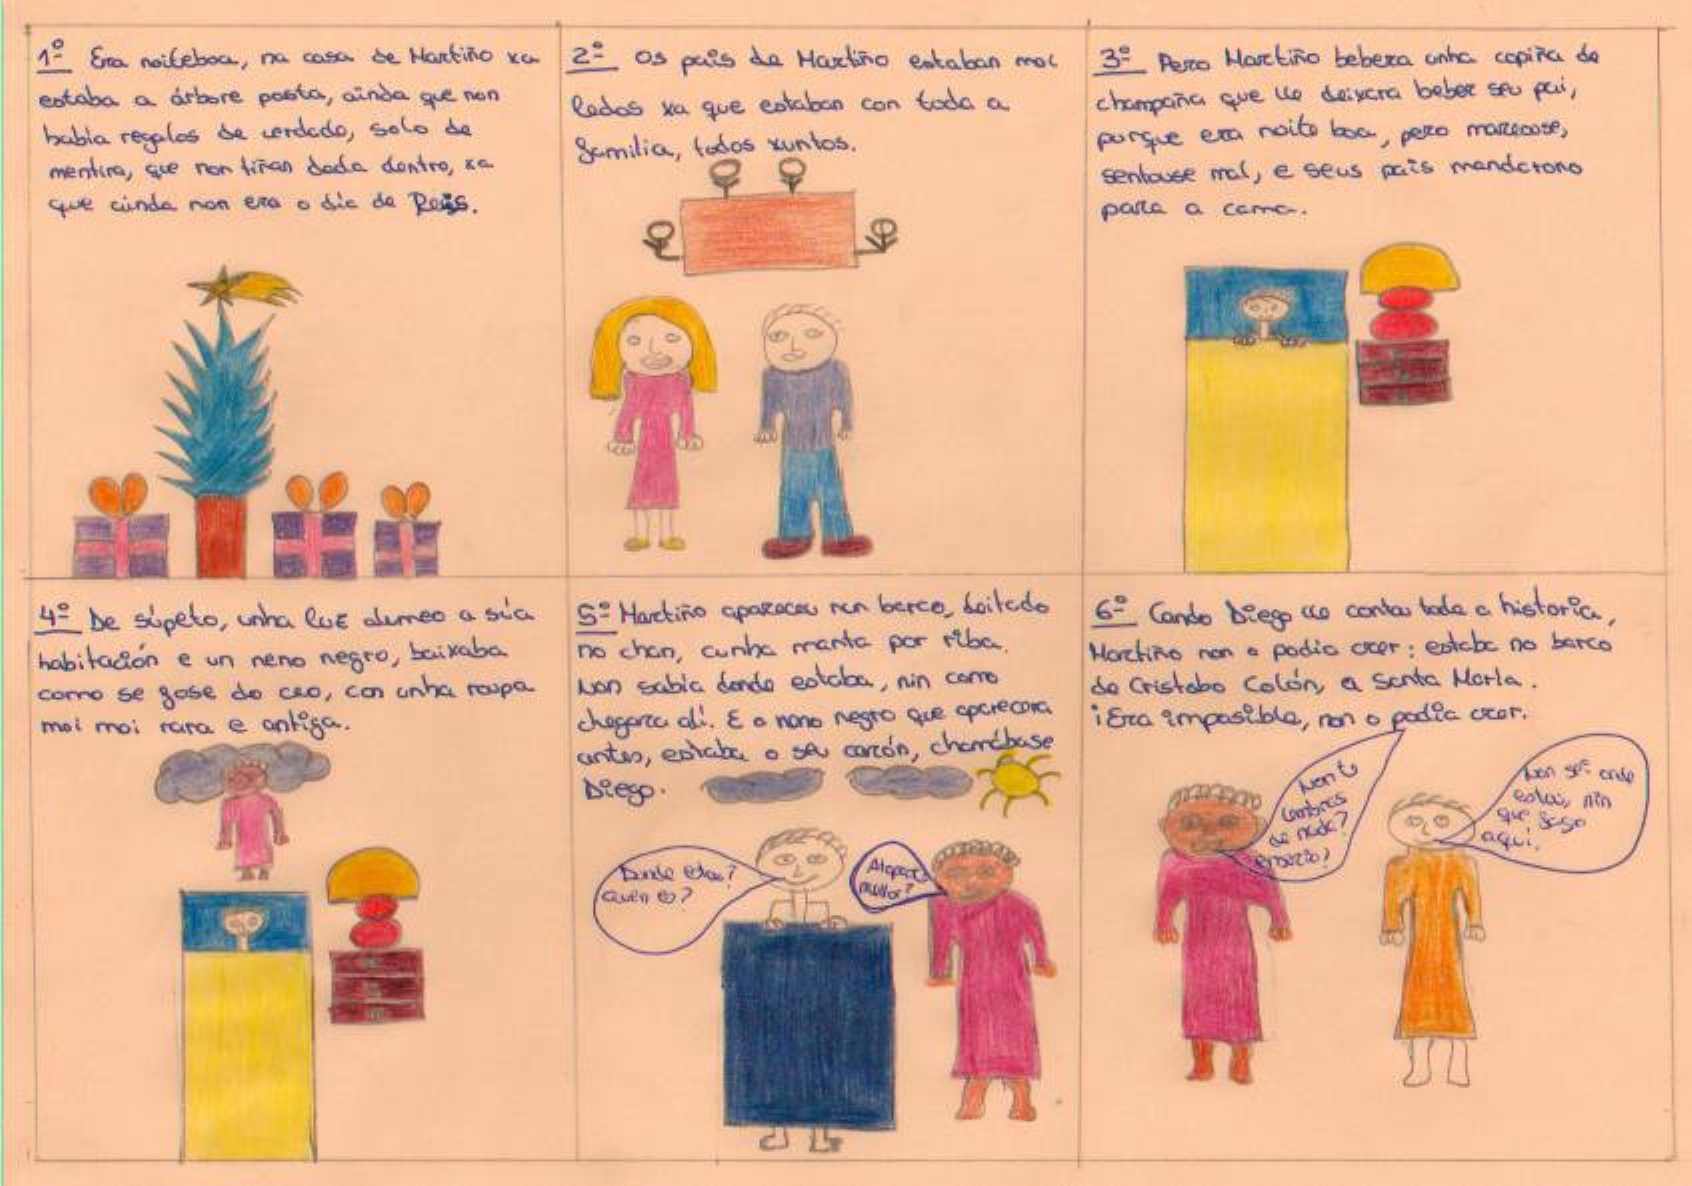 1º Era noiteboa, na casa de Martiño xa
estaba a árbore posta, aínda que non
había regalos de verdade, solo de
mentira, que non tiñan dada dentro, xa
que aínda non era o día de Reis.
2º Os pais de Martiño estaban moi
ledos xa que estaban con toda a
familia, todos xuntos.
3º Pero Martiño bebera unha copiña de
champaña que lle deixara beber seu pai,
porque era noite boa, pero mareouse,
sentouse mal, e seus pais mandárono
para a cama.
4º De súpeto, unha luz alumeo a súa
habitación e un neno negro, baixaba
como se fose do ceo, con unha roupa
moi moi rara e antiga.
5º Martiño apareceu nun barco, deitado
no chan, cunha manta por riba.
Non sabía donde estaba, nin como
chegara alí. E o neno negro que aparecera
antes, estaba o seu carón, chamábase
Diego.
Donde estou?
Quén es?
Atópaste
mellor?
6º Cando Diego lle contou toda a historia,
Martiño non o podía crer: estaba no barco
de Cristobo Colón, a Santa María.
¡Era imposible, non o podía crer.
Non te
lembras
de nada?
Non sei onde
estou, nin
que fago
aquí.